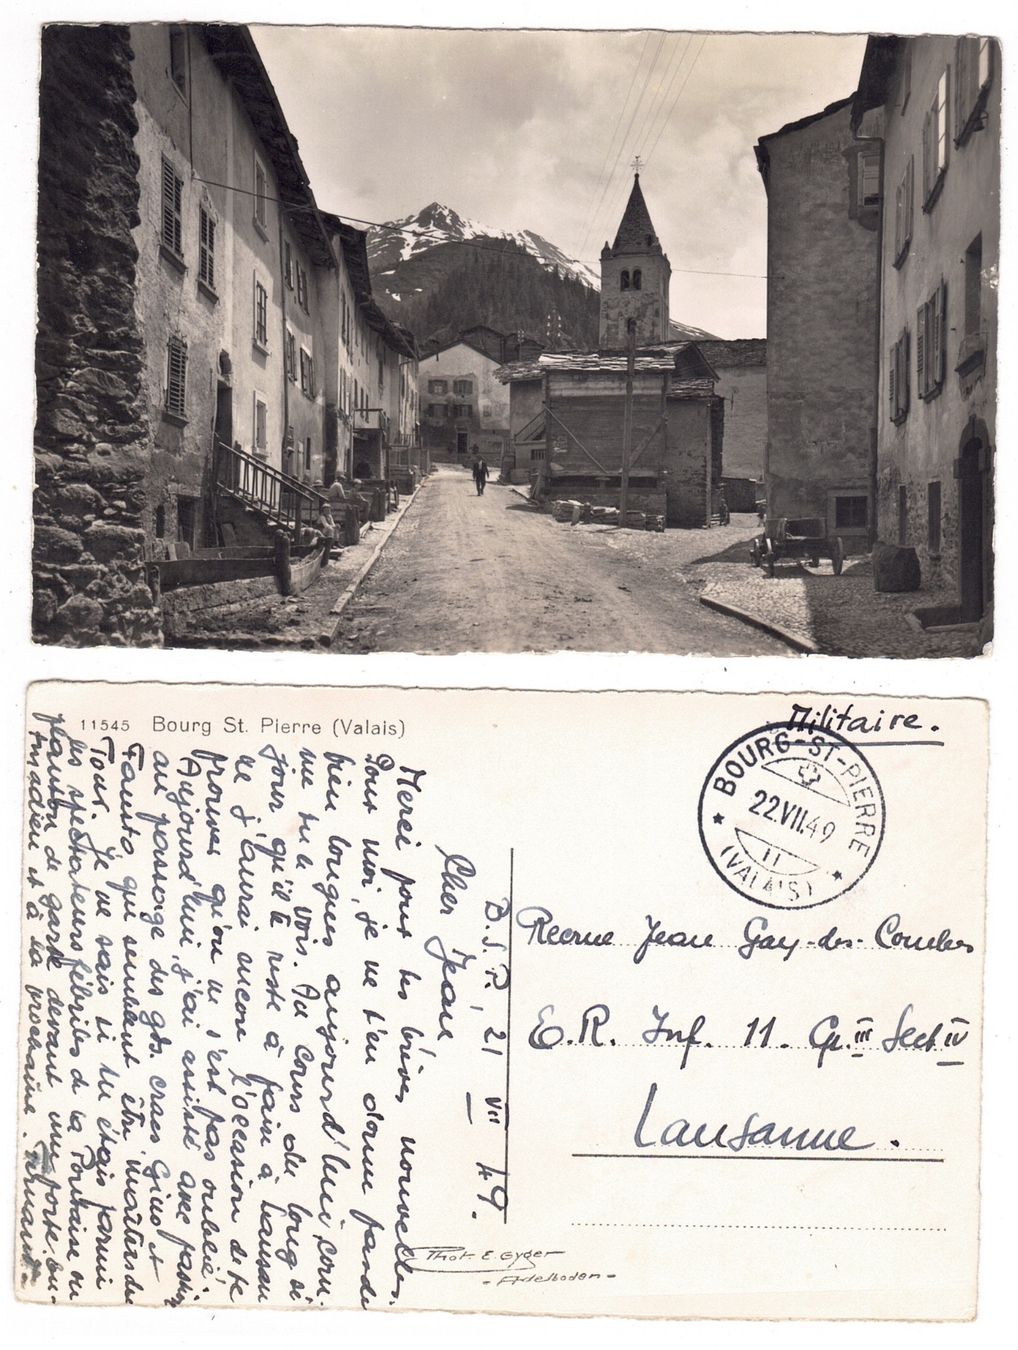 11545 Bourg St. Pierre (Valais)
Militaire.
BOURG-ST-PIERRE
22.VII.49
11
(VALAIS)
Recrue Jean Gay-des-Combes
E.R. Inf. 11. Cp. III Sect IV
Lausanne.
B.S.P. 21 VII 49.
Cher Jean
Merci pour tes brèves nouvelles.
Pour moi, je ne t'en donne pas de
bien longues aujourd'hui, com-
me tu le vois. Au cours du long sé-
jour qu'il te reste à faire à Lausan-
ne j'aurai encore l'occasion de te
prouver qu'on ne s'est pas oublié.
Aujourd'hui, j'ai assisté avec
au passage des gds. cracs Gino et
Fausto qui semblent être maîtres du
Tour. Je ne sais si tu étais parmi
les spectateurs fébriles de la Pontaise ou
planton de garde devant une porte. En-
adieu et à la prochaine. Fernand.
Phot. E. Gyger
- Adelboden -